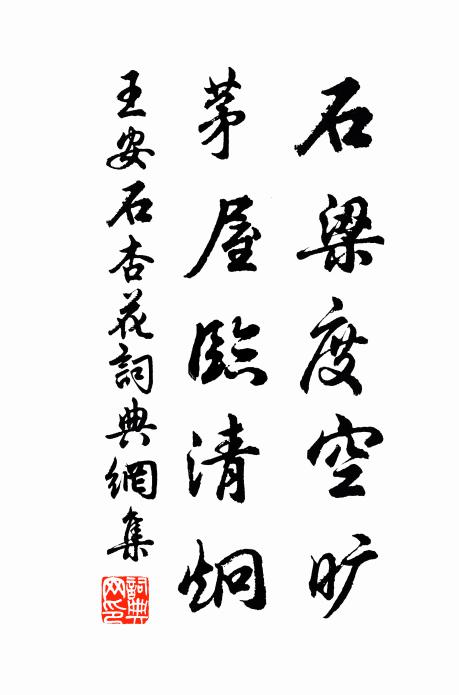 石梁度空旷
茅屋臨清炯
王安石杏花詞典網集
詞典网印